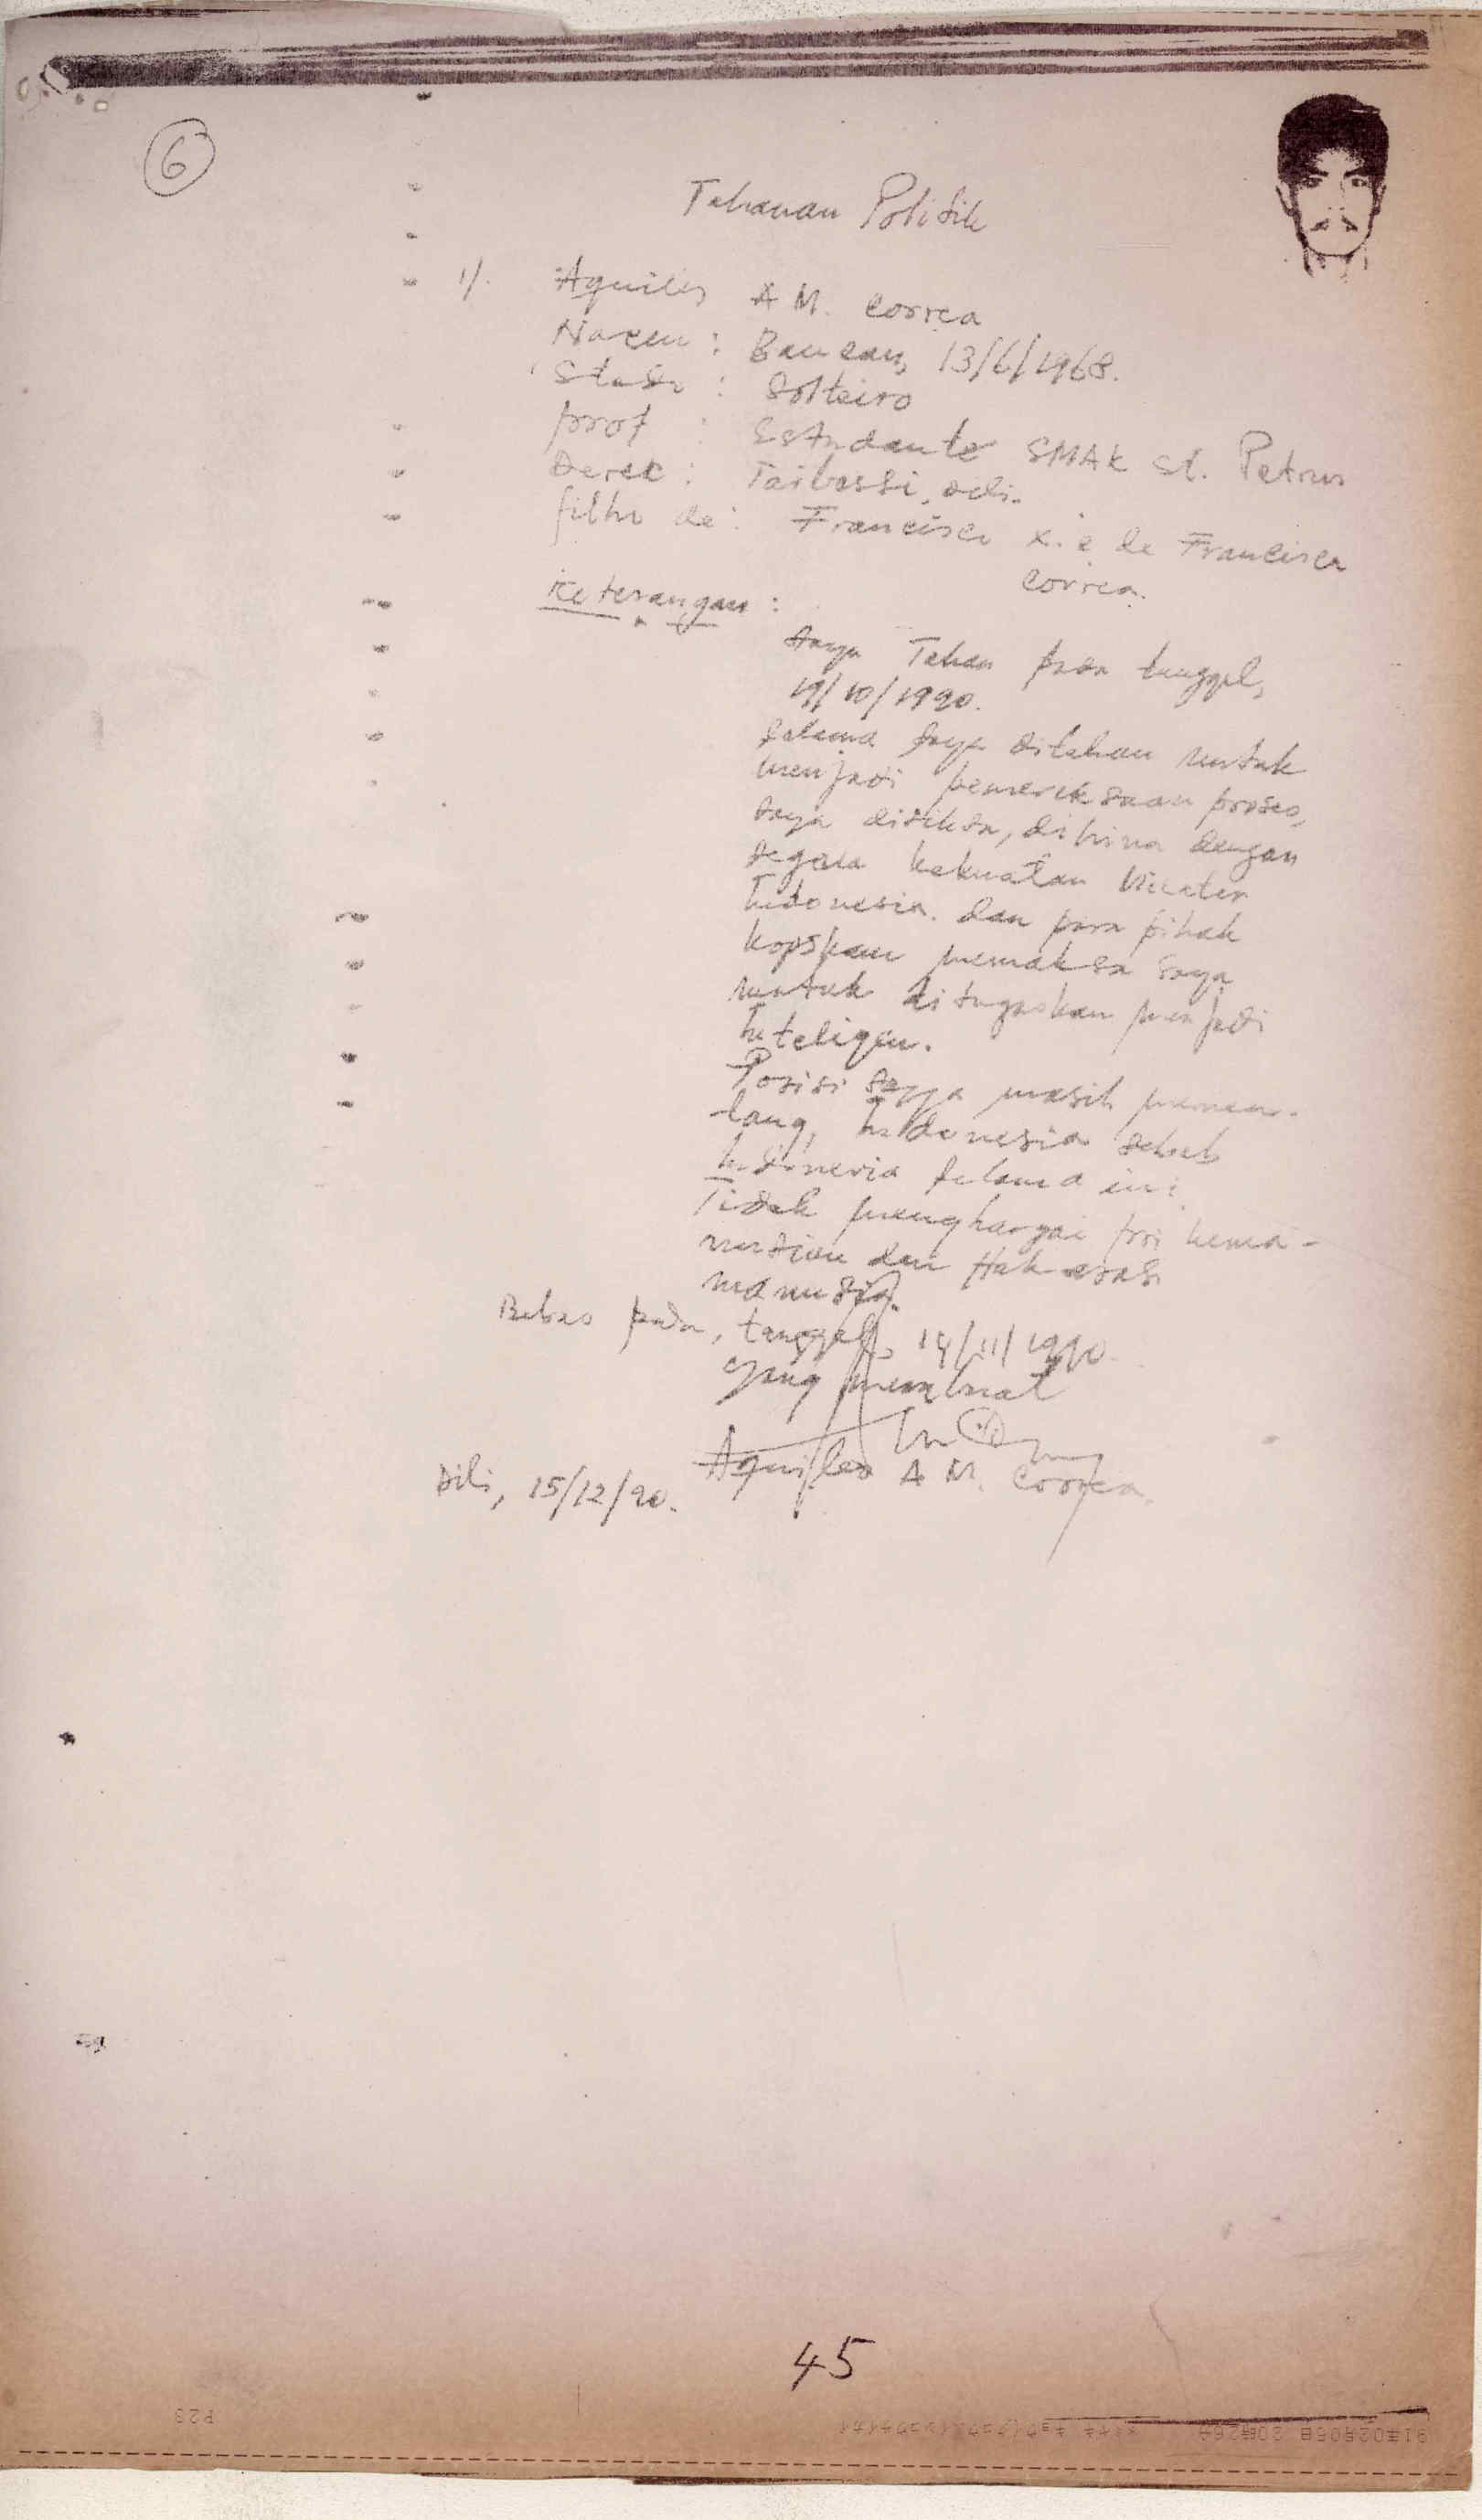 6
Tahanan Politik
1/. Aquiles A M. Correa
Naceu : Baucau, 13/6/1968.
: Solteiro
prof : Estudante SMAK St. Petrus
Derec : Taibessi, Dili.
filho de : Francisco X. e de Francisca
Correa.
Keterangan :
Saya Tahan pada tanggal,
19/10/1990.
selama saya ditahan untuk
menjadi pemereksaan proses,
saya disiksa, dihina dengan
segala kekuatan
Indonesia. dan para pihak
kopskam memaksa saya
untuk ditugaskan menjadi
Inteligen.
Posisi saya masih menen-
tang, Indonesia sebab
Indonesia selama ini
Tidak menghargai pri kema-
nusian dan Hak asasi
manusia.
Bebas pada, tanggal, 14/11/1990.
yang membuat
Aquiles A M. Correa.
Dili, 15/12/90.
45
P23
91年02月05日 20時26分